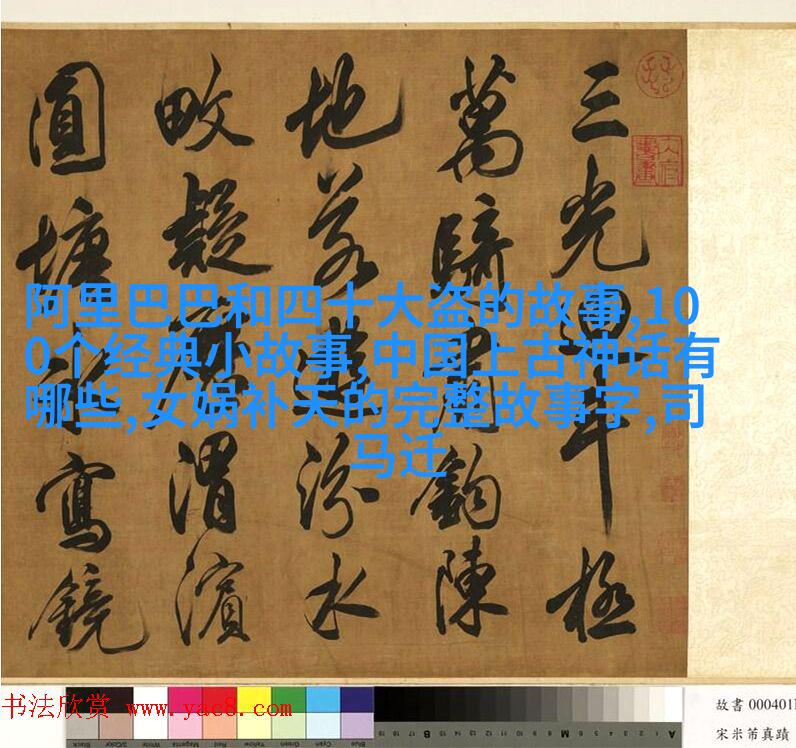 三光迴斗極
萬騎肅鈎陳
地若遊汾水
畋疑歷渭濱
圓塘冰寫鏡
阿里巴巴和四十大盗的故事,10
0个经典小故事,中国上古神话有
哪些,女娲补天的完整故事字,司
马迁
书法欣赏 www.yac8.com
故書 000401
宋米芾真蹟